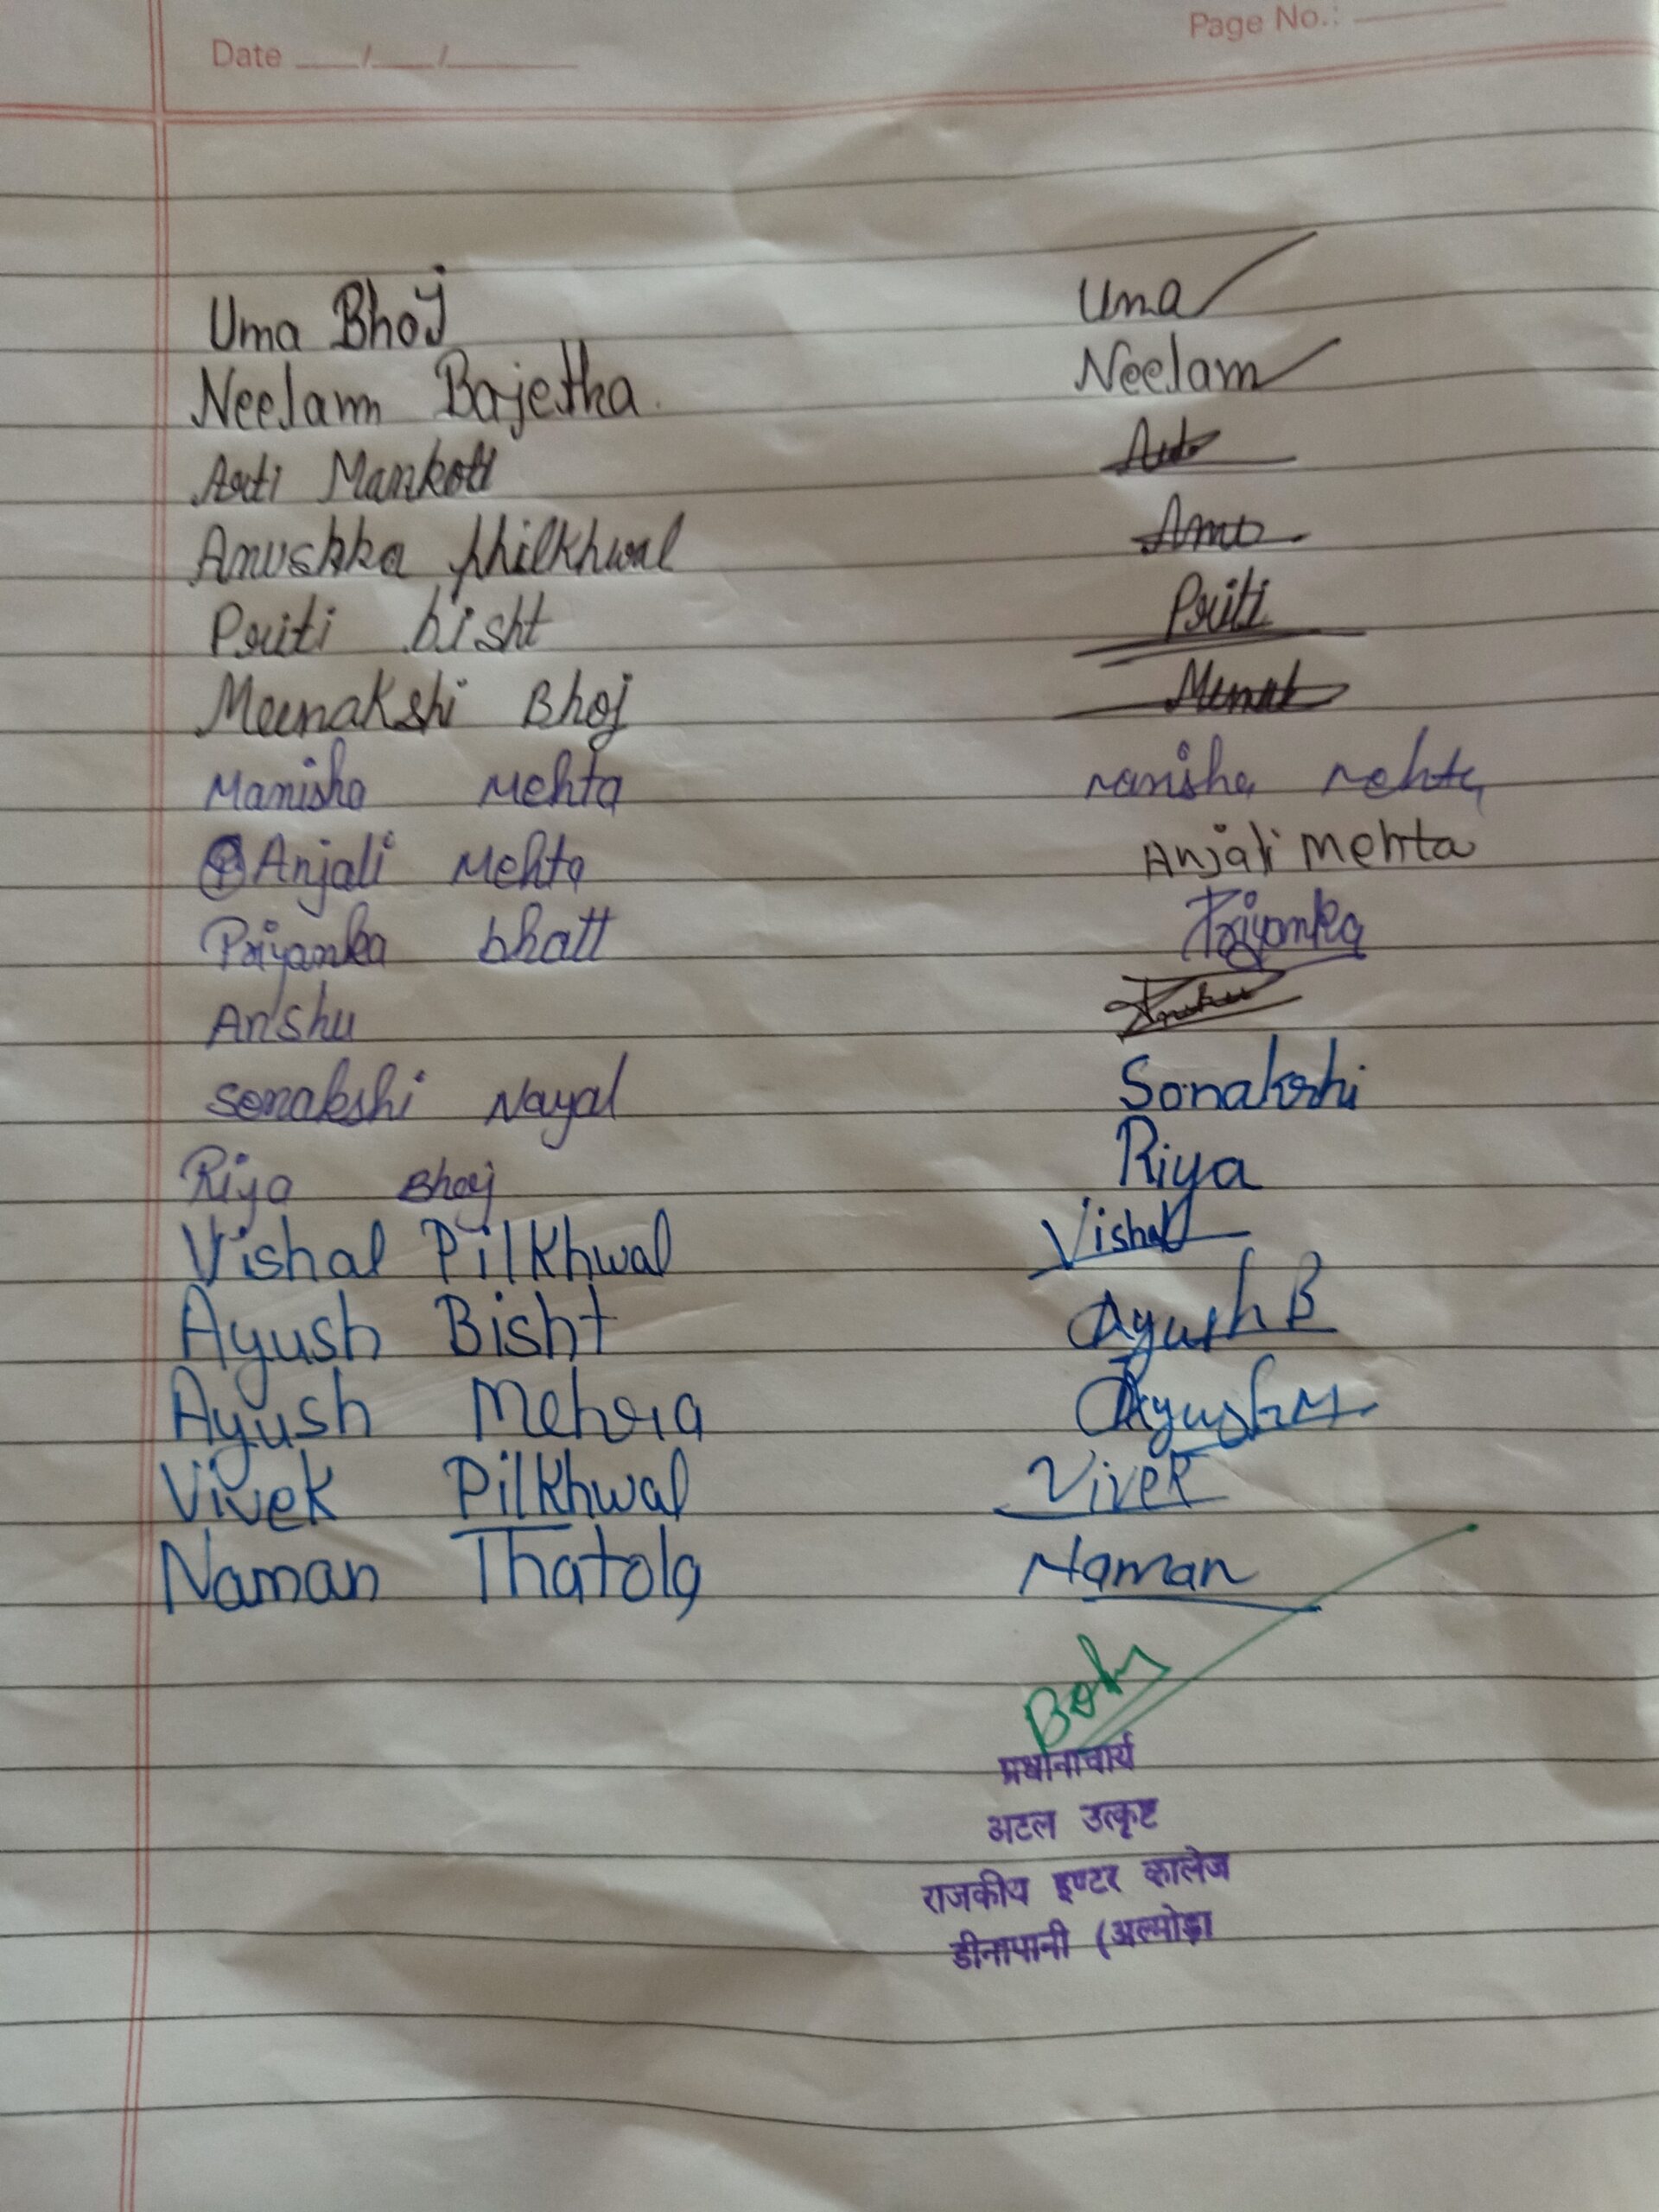 Date __/__/____ Page No.: ____
Uma Bhoj Uma
Neelam Bajetha. Neelam
Arti Mankoti
Anushka philkhwal Anu
Priti bisht Priti
Meenakshi Bhoj
Manisha Mehta Manisha Mehta
Anjali Mehta Anjali Mehta
Priyanka bhatt Priyanka
Anshu Anshu
Sonakshi Nayal Sonakshi
Riya Bhoj Riya
Vishal Pilkhwal Vishal
Ayush Bisht Ayush B
Ayush Mehra Ayush M
Vivek Pilkhwal Vivek
Naman Thatola Naman
प्रधानाचार्य
अटल उत्कृष्ट
राजकीय इण्टर कालेज
डीनापानी (अल्मोड़ा